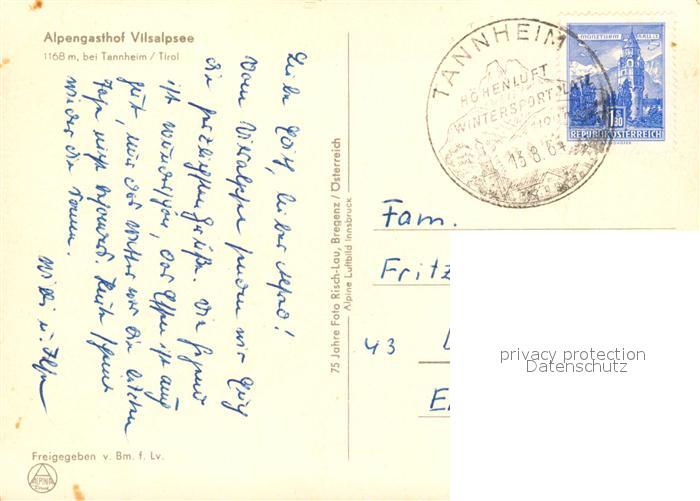 Alpengasthof Vilsalpsee
1168 m, bei Tannheim / Tirol
Liebe
Vom Vilsalpsee senden wir Euch
die herzlichsten Grüße. Die Gegend
ist wunderschön, das Essen ist auch
gut, nur das Wetter war die letzten
Tage nicht besonders. Heute scheint
wieder die Sonne.
Freigegeben v. Bm. f. Lv.
ALPINA
75 Jahre Foto Risch-Lau, Bregenz / Österreich
Alpine Luftbild Innsbruck
TANNHEIM
HÖHENLUFT
WINTERSPORTPLATZ
13.8.6
MÜNZTURM HALL I. T.
1.80
REPUBLIK ÖSTERREICH
Fam.
Fritz
43
privacy protection
Datenschutz